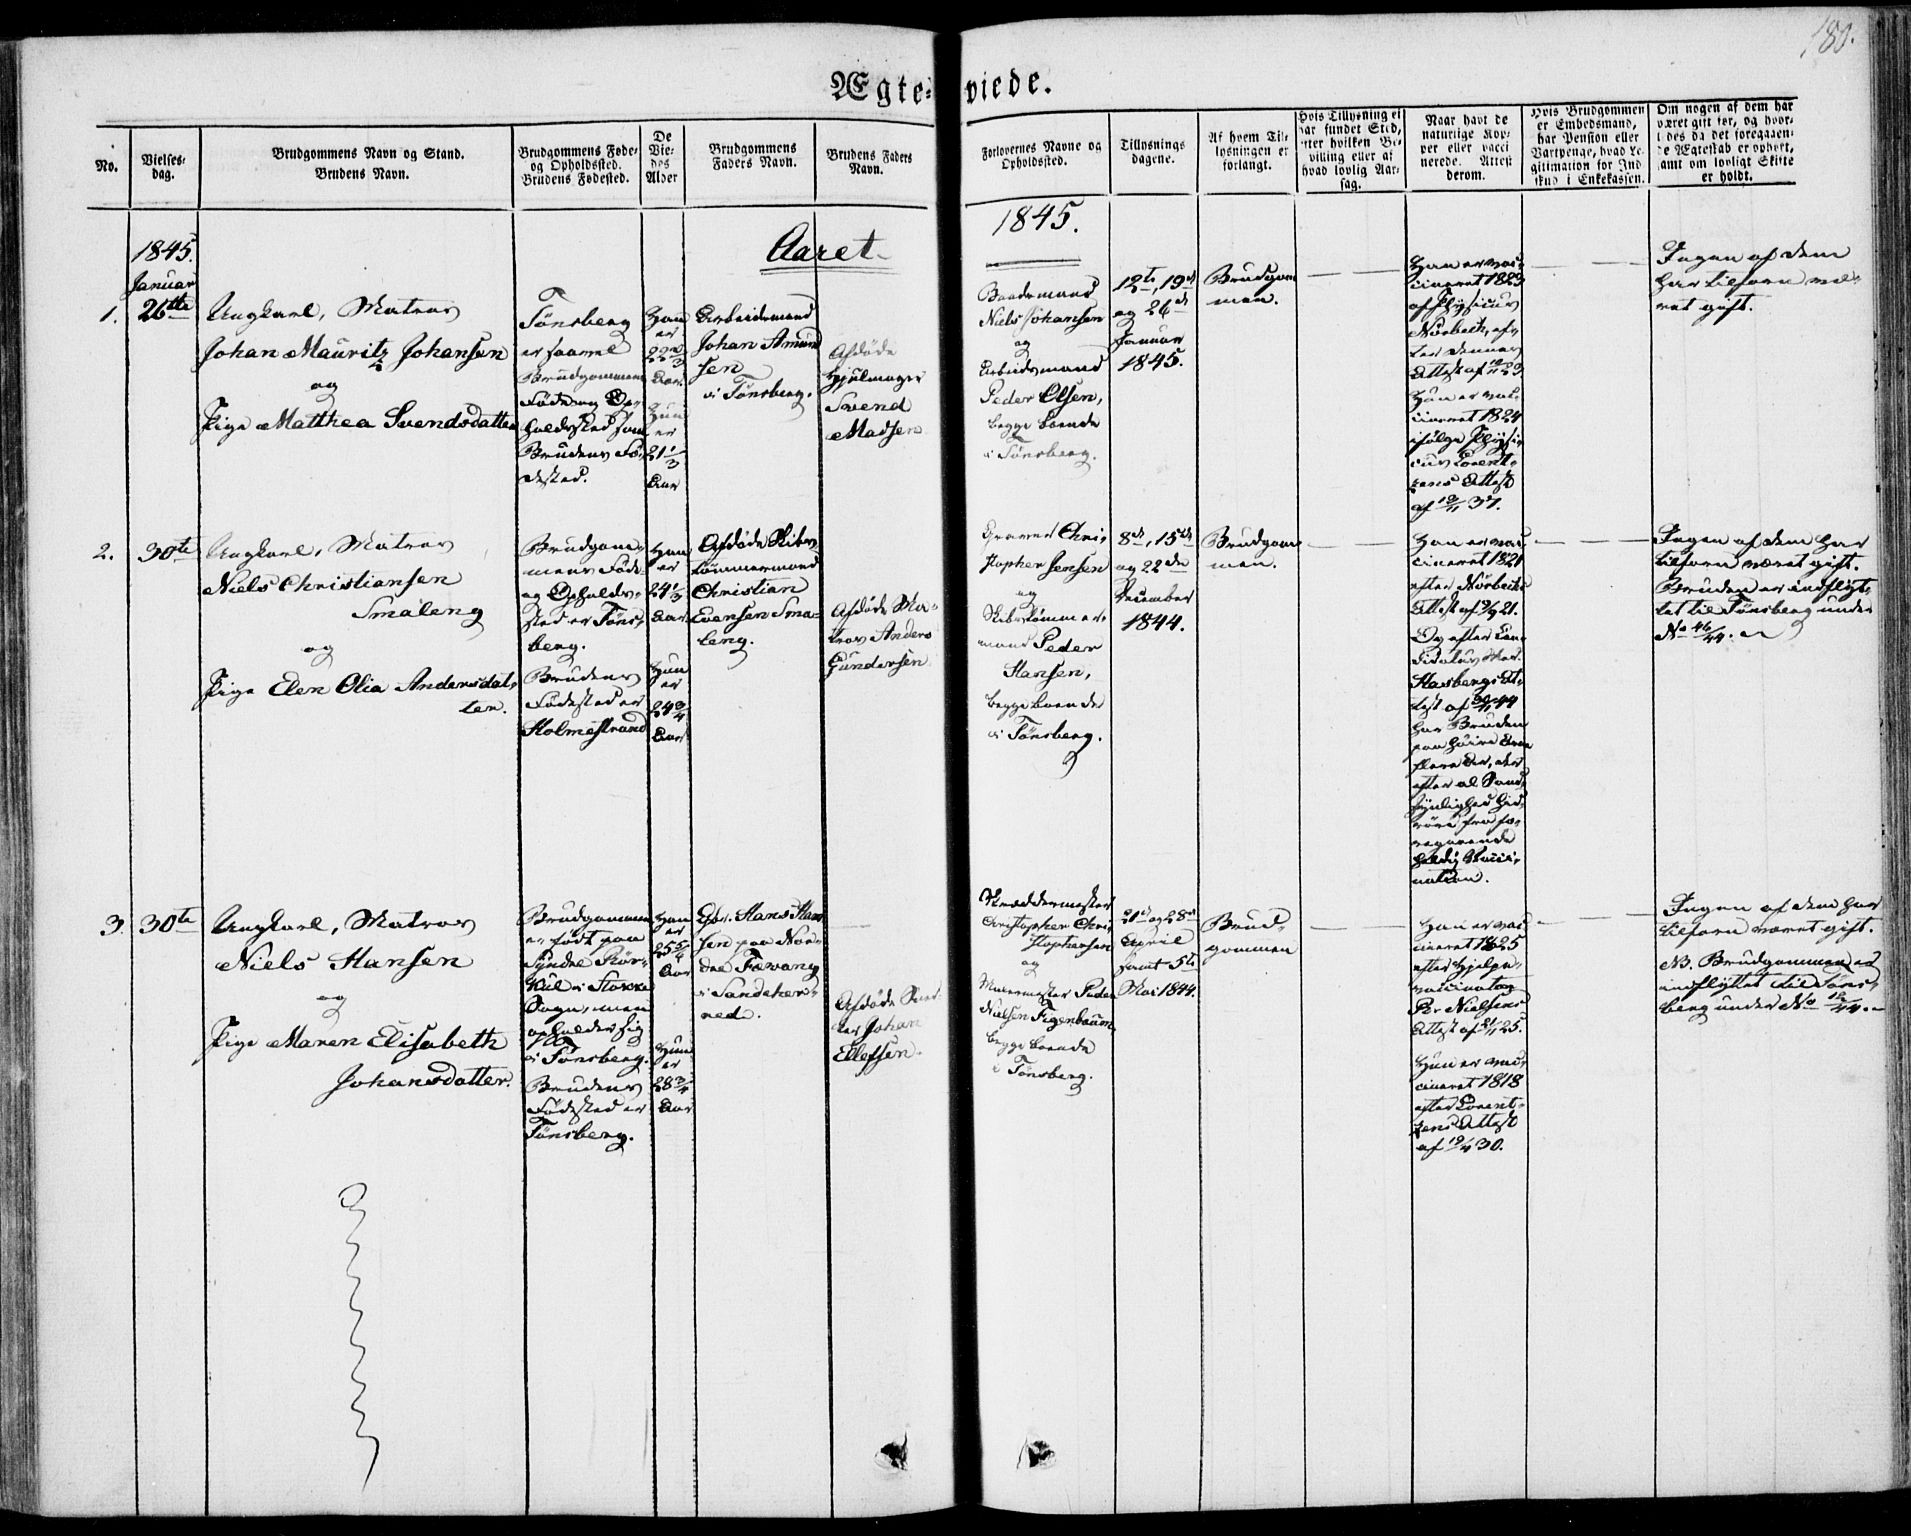 180.
Ægte-viede.
No.
Vielses-
dag.
Brudgommens Navn og Stand.
Brudens Navn.
Brudgommens Føde-
og Opholdssted.
Brudens Fødested.
De
Vie-
des
Alder
Brudgommens
Faders Navn.
Brudens Faders
Navn.
Forlovernes Navne og
Opholdssted.
Tillysnings
dagene.
Af hvem Til-
lysningen er
forlangt.
Hvis Tillysning ei
har fundet Sted,
efter hvilken Be-
villing eller af
hvad lovlig Aar-
sag.
Naar havt de
naturlige Kop-
per eller vacci
nerede. Attest
derom.
Hvis Brudgommen
er Embedsmand,
har Pension eller
Vartpenge, hvad Le-
gitimation for Ind
skud i Enkekassen.
Om nogen af dem har
været gift før, og hvor-
ledes da det foregaaen-
de Ægteskab er ophørt,
samt om lovligt Skifte
er holdt.
Aaret
1845.
1845.
Januar
1.
26tte
Ungkarl, Matros
Johan Mauritz Johansen
og
Pige Matthea Svendsdatter
Tønsberg
er saavel
Brudgommens
Føde og Op-
holdssted som
Brudens Fø-
dested.
Han
er
22 2/3
Aar.
Hun
er
21 1/3
Aar
Arbeidsmand
Johan Amund
sen
i Tønsberg.
Afdøde
Hjulmager
Svend
Madsen
Baadsmand
Niels Johansen
og
Arbeidsmand
Peder Olsen,
begge boende
i Tønsberg.
12te, 19de
og 26de
Januar
1845.
Brudgom
men.
Han er vac-
cineret 1823
af Physicus
Norbech, ef-
ter dennes
Attest af
Hun er vac-
cineret 1824
ifølge Physi-
cus Lorent-
zens Attest
af 12/11 37.
Ingen af dem
har tilforn væ-
ret gift.
2.
30te
Ungkarl, Matros
Niels Christiansen
Smaleng
og
Pige Elen Olia Andersdat-
ter.
Brudgom-
mens Føde-
og Opholds-
sted er Tøns-
berg.
Brudens
Fødested er
Holmestrand
Han
er
24 1/3
Aar
Hun
er
24 3/4
Aar
Afdøde Skibs-
tømmermand
Christian
Evensen Sma-
leng.
Afdøde Ma-
tros Anders
Gundersen
Graver Chri-
stopher Jensen
og
Skibstømmer-
mand Peder
Hansen,
begge boende
i Tønsberg.
8de, 15de
og 22de
December
1844.
Brudgom
men.
Han er vac-
cineret 1821
efter Norbechs
Attest af 9/9 21.
Og efter Can-
didatus Med.
Stasbergs At-
test af 30/11 44
har Bruden
paa høire Arm
flere Ar, der
efter al Sand-
synlighed hid-
røre fra fo-
regaaende
heldig Vacci-
nation.
Ingen af dem har
tilforn været gift.
Bruden er indflyt-
tet til Tønsberg under
No 46/44.
3.
30te
Ungkarl, Matros
Niels Hansen
og
Pige Maren Elisabeth
Johansdatter.
Brudgommen
er født paa
Syndre Rør-
kul i Stokke
Sogn, men
opholder sig
i Tønsberg.
Brudens
Fødested er
Tønsberg.
Han
er
25 5/4
Aar
Hun
er
28 3/4
Aar
Gbr. Hans Han
sen paa Nor-
dre Fevang
i Sandeher-
red.
Afdøde
Johan
Ellefsen.
Skræddermester
Christopher Chri-
stophersen
og
Murermester Peder
Nielsen Figenbaum
begge boende
i Tønsberg.
21de og 28de
April
samt 5te
Mai 1844.
Brud-
gommen
Han er vac-
cineret 1825
efter Hjelpe-
vaccinatør
Per Nielsens
Attest af 3/11 25.
Hun er vac-
cineret 1818
efter Lorent-
zens Attest
af 19/4 30.
Ingen af dem har
tilforn været gift.
NB. Brudgommen er
indflyttet til Tøns-
berg under No 12/44.